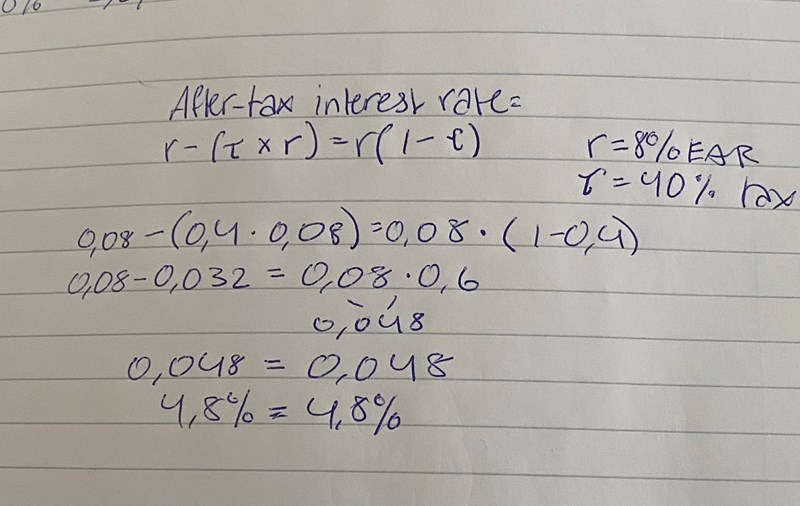 After-tax interest rate=
r-(τ x r)=r(1-τ)
r=8% EAR
τ=40% tax
0,08-(0,4·0,08)=0,08·(1-0,4)
0,08-0,032 = 0,08·0,6
0,048
0,048 = 0,048
4,8% = 4,8%